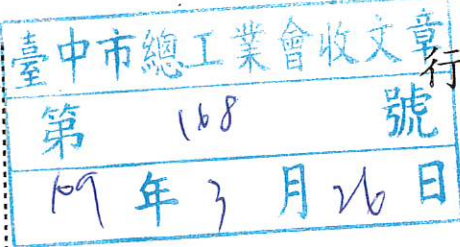 臺中市總工業會收文章
行
第 168 號
109 年 3 月 26 日